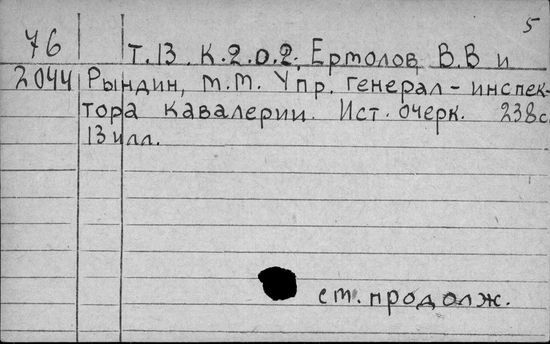 5
76 Т.13 К.2.о.2, Ермолов, В.В и
2044 Рындин, М.М. Упр. генерал-инспек-
тора кавалерии. Ист. очерк. 238с
13 илл.
см. продолж.